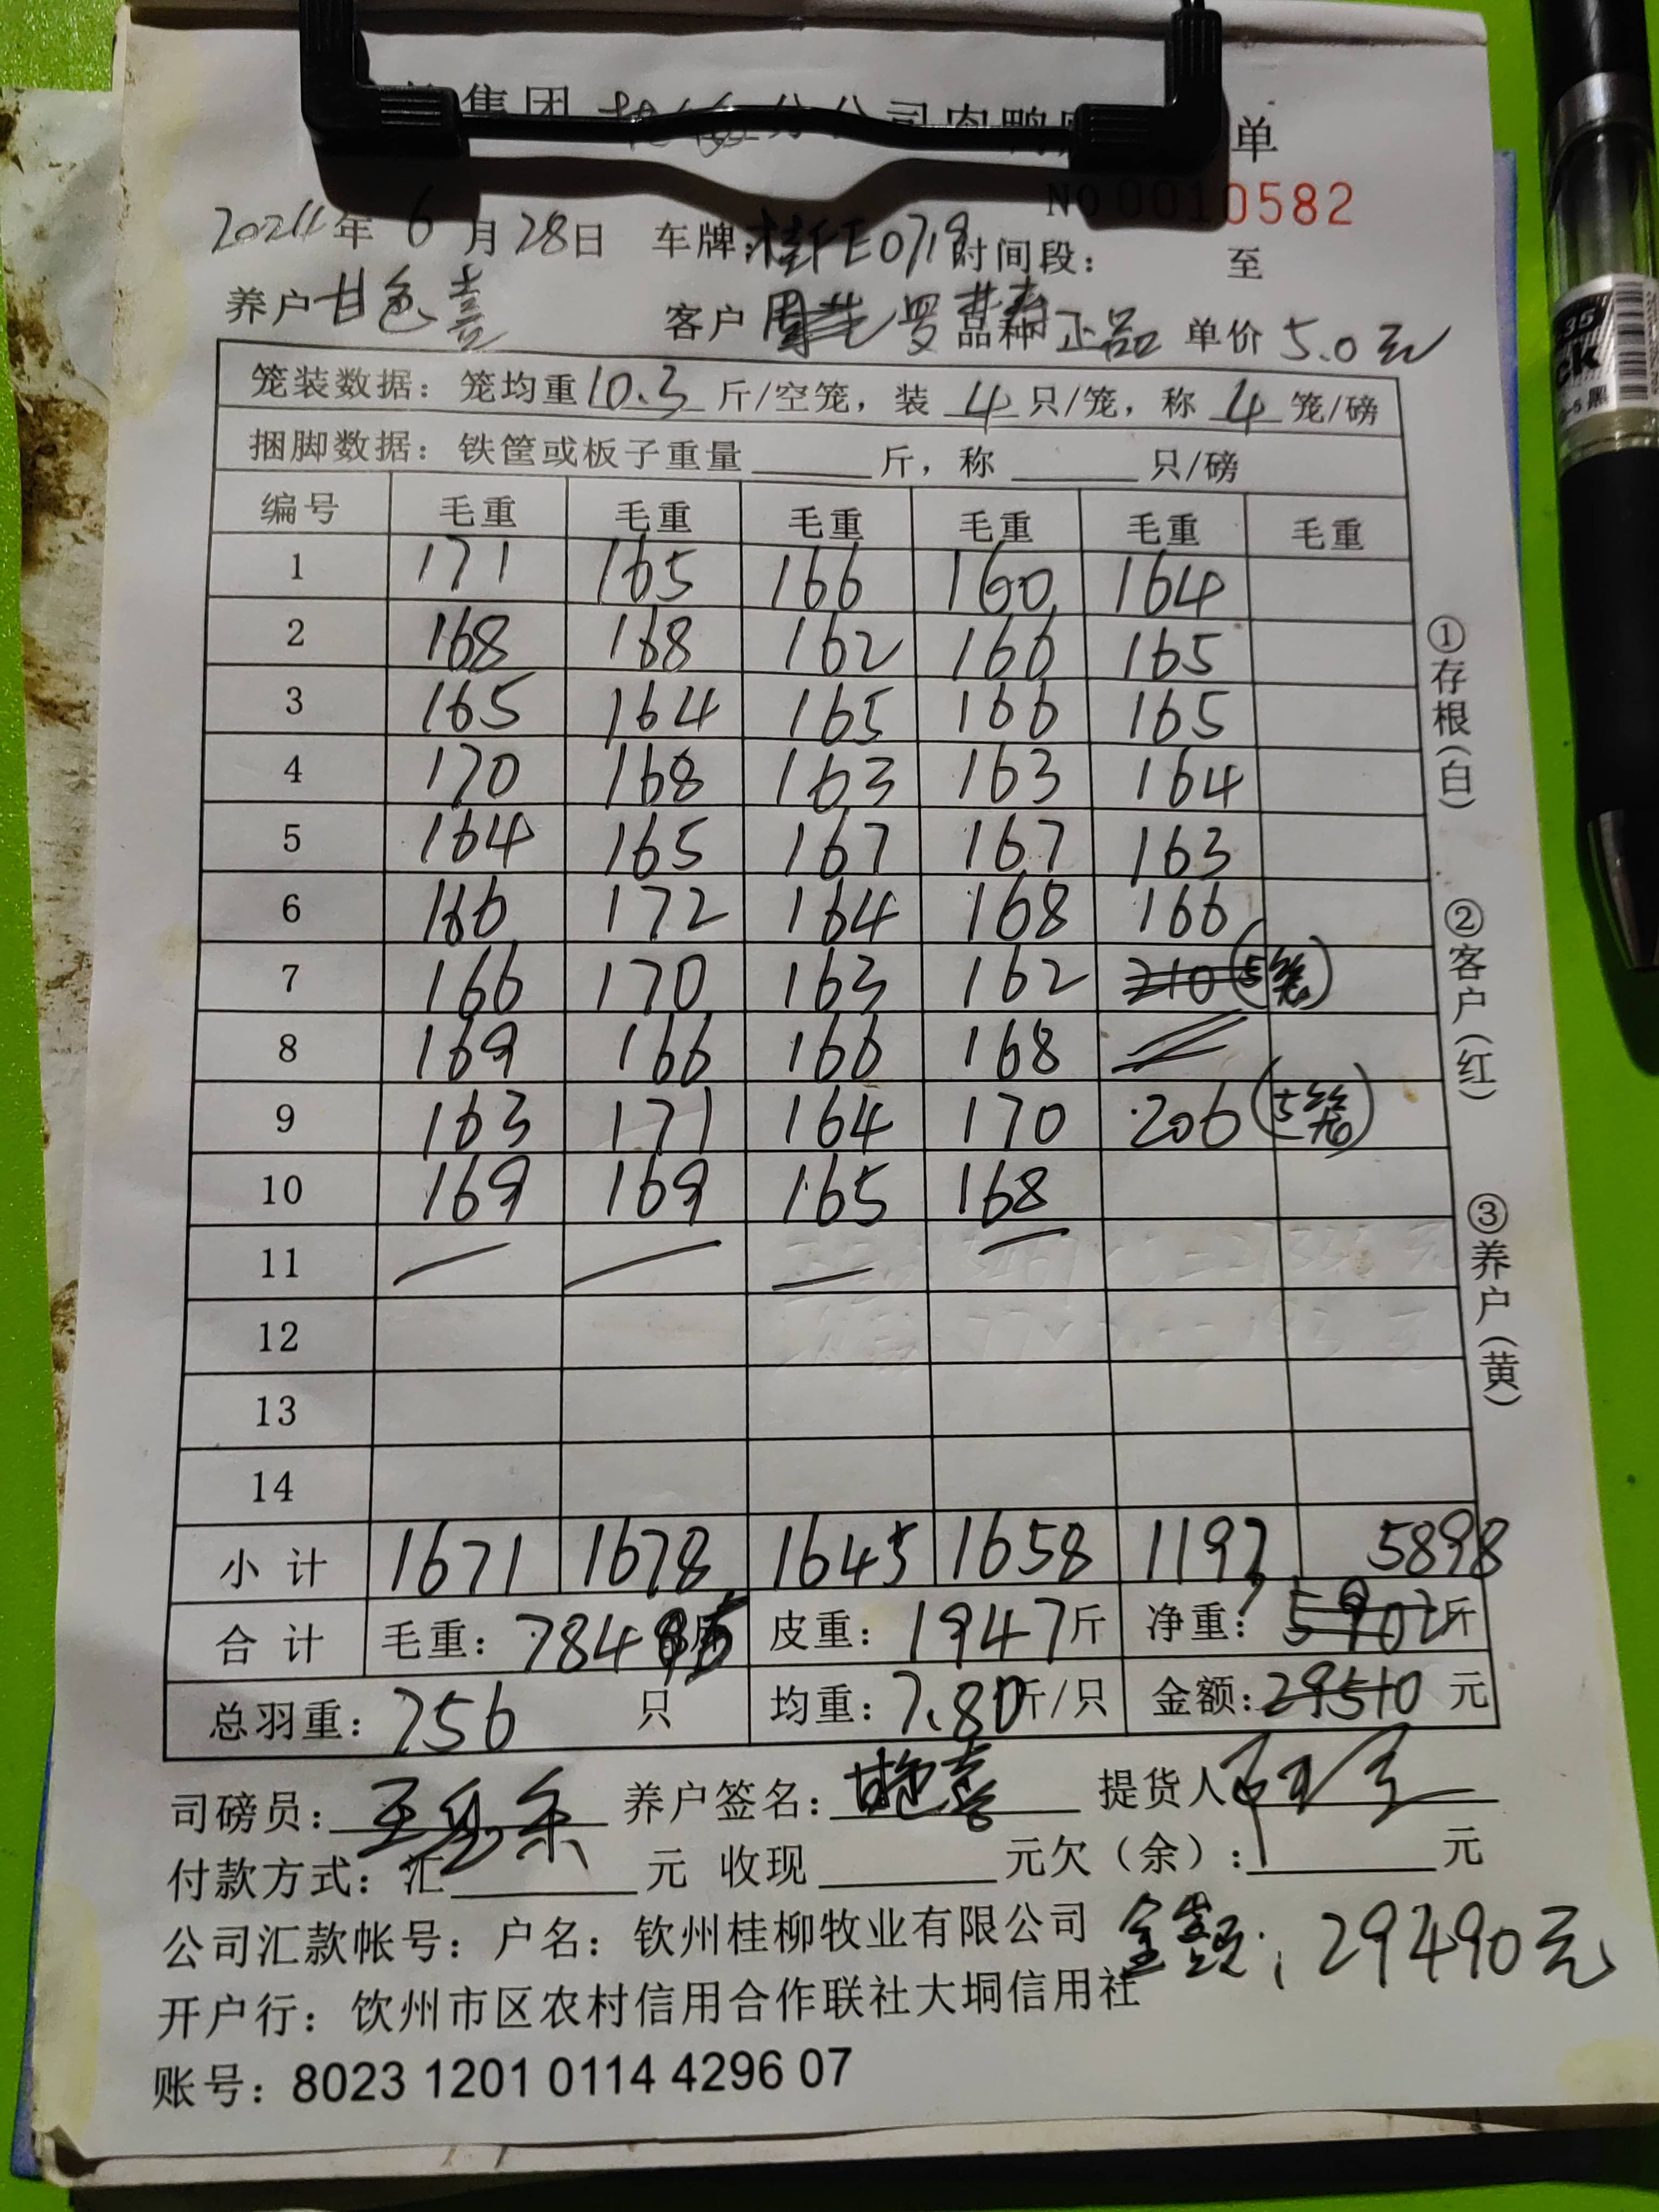 集团 分公司肉鸭 单
NO 0010582
2024年 6 月 28日 车牌:桂E0719 时间段: 至
养户 甘色喜 客户 罗 品种 正品 单价 5.0元
笼装数据: 笼均重 10.3 斤/空笼, 装 4 只/笼, 称 4 笼/磅
捆脚数据: 铁筐或板子重量 斤, 称 只/磅
编号 毛重 毛重 毛重 毛重 毛重 毛重
1 171 165 166 160 164
2 168 168 162 166 165
3 165 164 165 166 165
4 170 168 163 163 164
5 164 165 167 167 163
6 166 172 164 168 166
7 166 170 163 162 210 (5笼)
8 169 166 166 168
9 163 171 164 170 206 (5笼)
10 169 169 165 168
11
12
13
14
小计 1671 1678 1645 1658 1193 5898
合计 毛重: 7845 皮重: 1947斤 净重: 5902斤
总羽重: 756 只 均重: 7.80斤/只 金额: 29510 元
司磅员: 养户签名: 甘色喜 提货人
付款方式: 汇 元 收现 元欠(余): 元
公司汇款帐号: 户名: 钦州桂柳牧业有限公司 金额: 29490元
开户行: 饮州市区农村信用合作联社大垌信用社
账号: 8023 1201 0114 4296 07
①存根(白) ②客户(红) ③养户(黄)